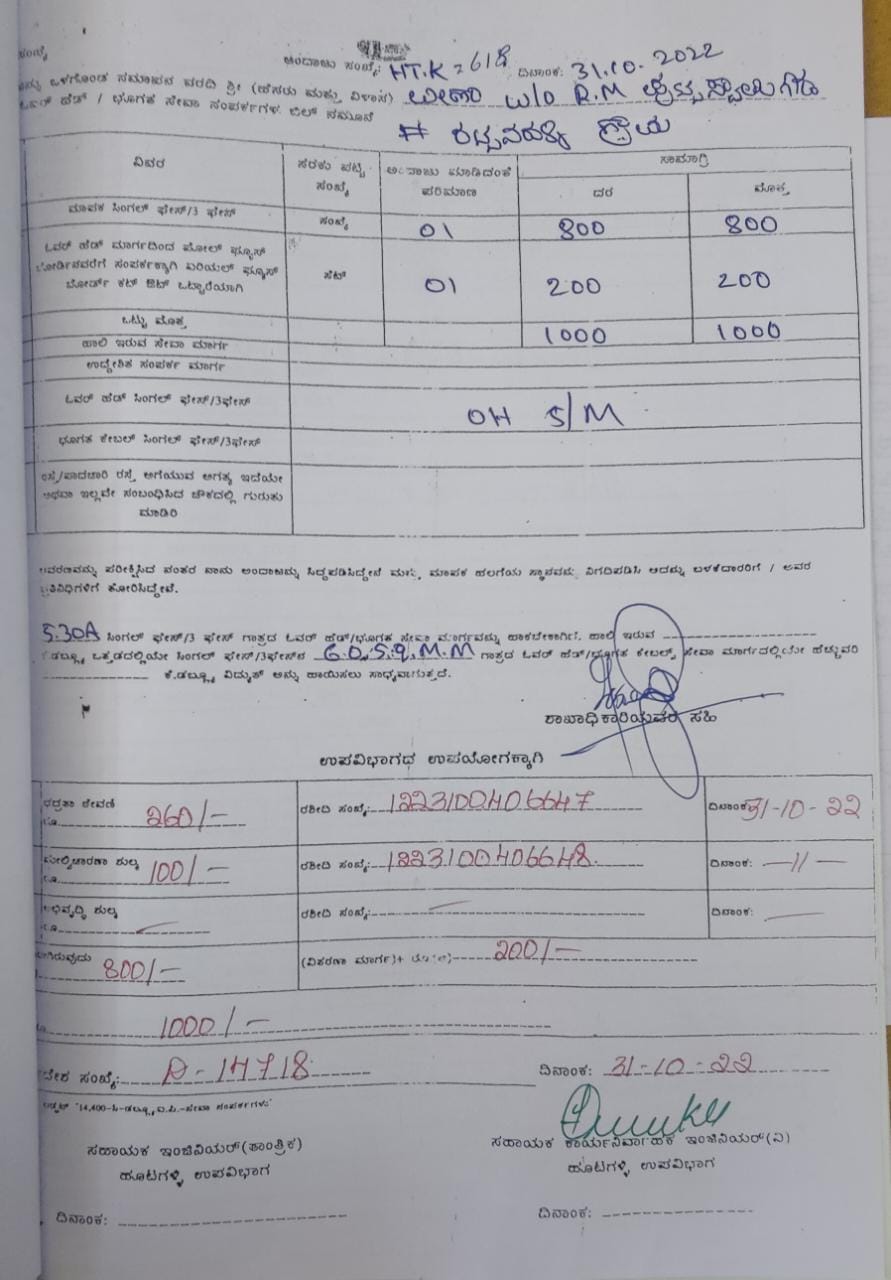 ಸಂಖ್ಯೆ
ಅಂದಾಜು ಸಂಖ್ಯೆ: HT.K = 618 ದಿನಾಂಕ: 31.10.2022
ಒಳಗೊಂಡ ಸಮಾಪನ ವರದಿ ಶ್ರೀ (ಹೆಸರು ಮತ್ತು ವಿಳಾಸ) W/O R.M
ಓವರ್ ಹೆಡ್ / ಭೂಗತ ಸೇವಾ ಸಂಪರ್ಕಗಳ ಬಿಲ್ ನಮೂನೆ
# ಗ್ರಾಮ
ವಿವರ ಸರಕು ಪಟ್ಟಿ ಸಂಖ್ಯೆ ಅಂದಾಜು ಮಾಡಿದಂತೆ ಪರಿಮಾಣ ಸಾಮಾಗ್ರಿ
ದರ ಮೊತ್ತ
ಮಾಪಕ ಸಿಂಗಲ್ ಫೇಸ್/3 ಫೇಸ್ ಸಂಖ್ಯೆ 01 800 800
ಓವರ್ ಹೆಡ್ ಮಾರ್ಗದಿಂದ ಪೋಲ್ ಫ್ಯೂಸ್
ಬೋರ್ಡಿನವರೆಗೆ ಸಂಪರ್ಕಕ್ಕಾಗಿ ಏರಿಯಲ್ ಫ್ಯೂಸ್
ಬೋರ್ಡ್ ಕಟ್ ಔಟ್ ಒಟ್ಟಾರೆಯಾಗಿ ಸೆಟ್ 01 200 200
ಒಟ್ಟು ಮೊತ್ತ 1000 1000
ಹಾಲಿ ಇರುವ ಸೇವಾ ಮಾರ್ಗ
ಉದ್ದೇಶಿತ ಸಂಪರ್ಕ ಮಾರ್ಗ
ಓವರ್ ಹೆಡ್ ಸಿಂಗಲ್ ಫೇಸ್/3ಫೇಸ್ OH S/M
ಭೂಗತ ಕೇಬಲ್ ಸಿಂಗಲ್ ಫೇಸ್/3ಫೇಸ್
ರಸ್ತೆ/ಪಾದಚಾರಿ ರಸ್ತೆ ಅಗೆಯುವ ಅಗತ್ಯ ಇದೆಯೇ
ಅಥವಾ ಇಲ್ಲವೇ ಸಂಬಂಧಿಸಿದ ಚೌಕದಲ್ಲಿ ಗುರುತು
ಮಾಡಿರಿ
ಆವರಣವನ್ನು ಪರೀಕ್ಷಿಸಿದ ನಂತರ ನಾನು ಅಂದಾಜನ್ನು ಸಿದ್ಧಪಡಿಸಿದ್ದೇನೆ ಮತ್ತು ಮಾಪಕ ಹಲಗೆಯ ಸ್ಥಾನವನ್ನು ನಿಗದಿಪಡಿಸಿ ಅದನ್ನು ಬಳಕೆದಾರರಿಗೆ / ಅವರ
ಪ್ರತಿನಿಧಿಗಳಿಗೆ ತೋರಿಸಿದ್ದೇನೆ.
5.30A ಸಿಂಗಲ್ ಫೇಸ್/3 ಫೇಸ್ ಗಾತ್ರದ ಓವರ್ ಹೆಡ್/ಭೂಗತ ಸೇವಾ ಮಾರ್ಗವನ್ನು ಹಾಕಬೇಕಾಗಿದೆ. ಹಾಲಿ ಇರುವ
ಕೆ.ಡಬ್ಲ್ಯೂ ಒತ್ತಡದಲ್ಲಿಯೇ ಸಿಂಗಲ್ ಫೇಸ್/3ಫೇಸ್‌ನ 6.0.S.Q.M.M ಗಾತ್ರದ ಓವರ್ ಹೆಡ್/ಭೂಗತ ಕೇಬಲ್ಸ್ ಸೇವಾ ಮಾರ್ಗದಲ್ಲಿಯೇ ಹೆಚ್ಚುವರಿ
ಕೆ.ಡಬ್ಲ್ಯೂ ವಿದ್ಯುತ್ ಅನ್ನು ಹಾಯಿಸಲು ಸಾಧ್ಯವಾಗುತ್ತದೆ.
ಶಾಖಾಧಿಕಾರಿಯವರ ಸಹಿ
ಉಪವಿಭಾಗದ ಉಪಯೋಗಕ್ಕಾಗಿ
ಭದ್ರತಾ ಠೇವಣಿ
ರೂ. 260/- ರಶೀದಿ ಸಂಖ್ಯೆ: 1223100406647 ದಿನಾಂಕ: 31-10-22
ಮೇಲ್ವಿಚಾರಣಾ ಶುಲ್ಕ
ರೂ. 100/- ರಶೀದಿ ಸಂಖ್ಯೆ: 1223100406648 ದಿನಾಂಕ: -11-
ಅಭಿವೃದ್ಧಿ ಶುಲ್ಕ
ರೂ. ರಶೀದಿ ಸಂಖ್ಯೆ: ದಿನಾಂಕ:
800/- (ವಿತರಣಾ ಮಾರ್ಗ)+ 200/-
1000/-
ಸಂಖ್ಯೆ: D-14718 ದಿನಾಂಕ: 31-10-22
ಸಹಾಯಕ ಇಂಜಿನಿಯರ್(ತಾಂತ್ರಿಕ) ಸಹಾಯಕ ಕಾರ್ಯನಿರ್ವಾಹಕ ಇಂಜಿನಿಯರ್(ವಿ)
ಹೂಟಗಳ್ಳಿ ಉಪವಿಭಾಗ ಹೂಟಗಳ್ಳಿ ಉಪವಿಭಾಗ
ದಿನಾಂಕ: ದಿನಾಂಕ: